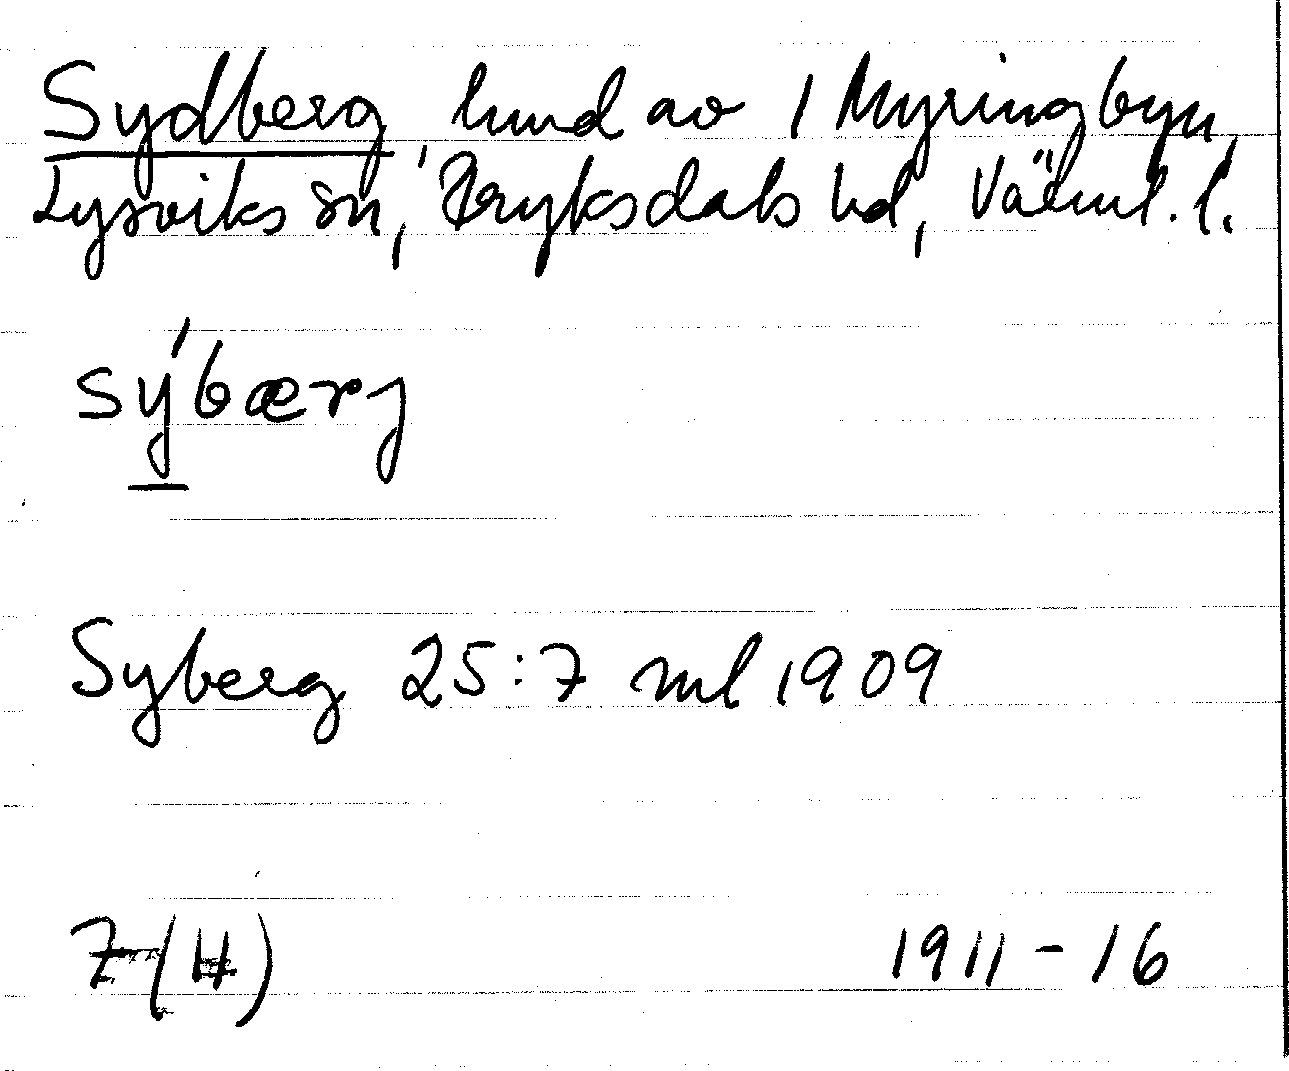 Sydberg, hmd av 1 Myringbyn,
Lysviks sn, Fryksdals hd, Värml. l.
sýbærj
Syberg 25:7 ml 1909
Z (H) 1911-16